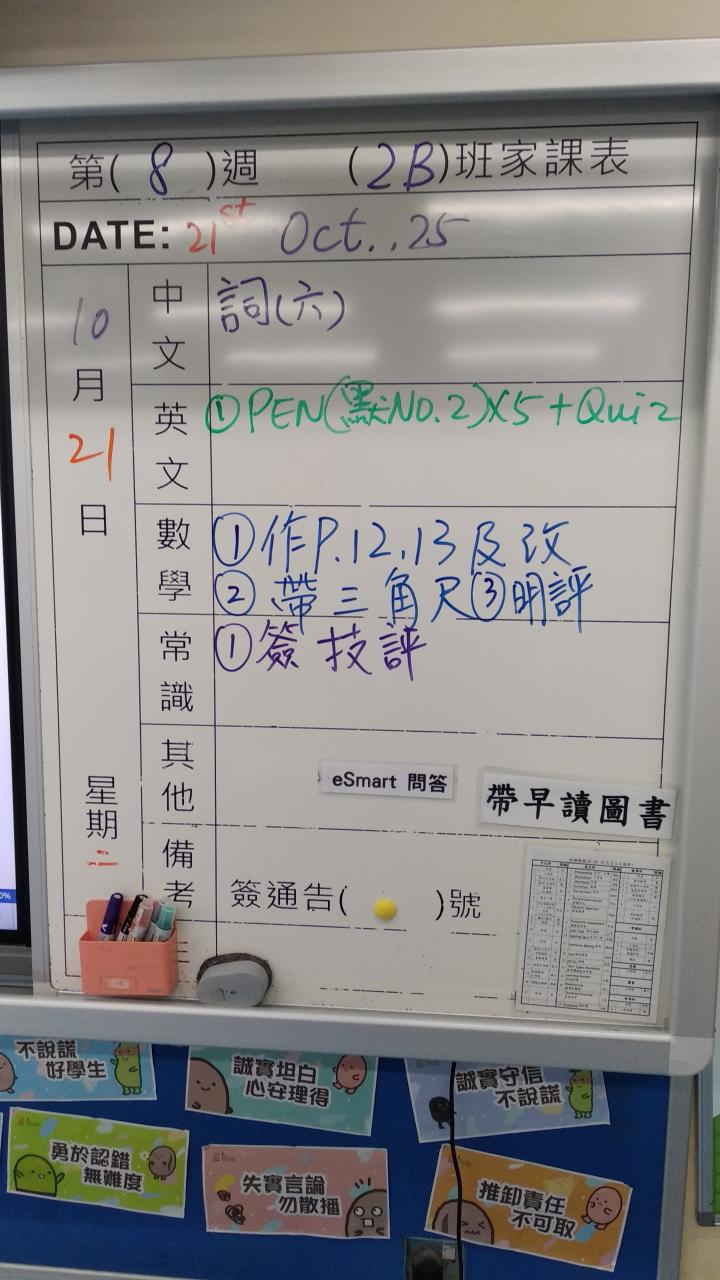 第( 8 )週 (2B)班家課表
DATE: 21st Oct..25
10
月
21
日
星期二
中文
詞(六)
英文
①PEN(默NO.2)X5+Quiz
數學
①作P.12,13及改
②帶三角尺③明評
常識
①簽技評
其他
eSmart 問答
帶早讀圖書
備考
簽通告( )號
不說謊
好學生
誠實坦白
心安理得
誠實守信
不說謊
勇於認錯
無難度
失實言論
勿散播
推卸責任
不可取